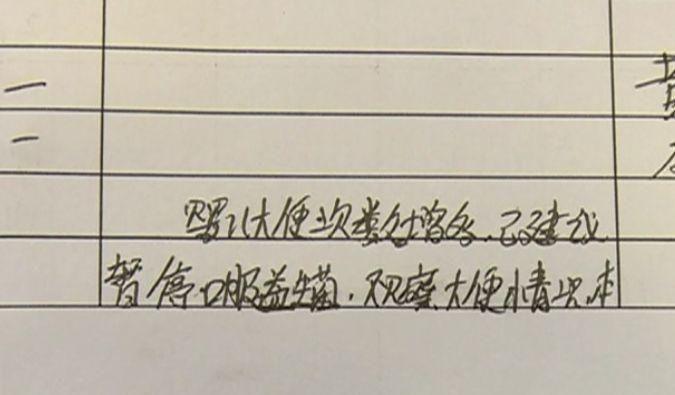 一
一
大便次数增多，已建议
暂停口服益生菌，观察大便情况